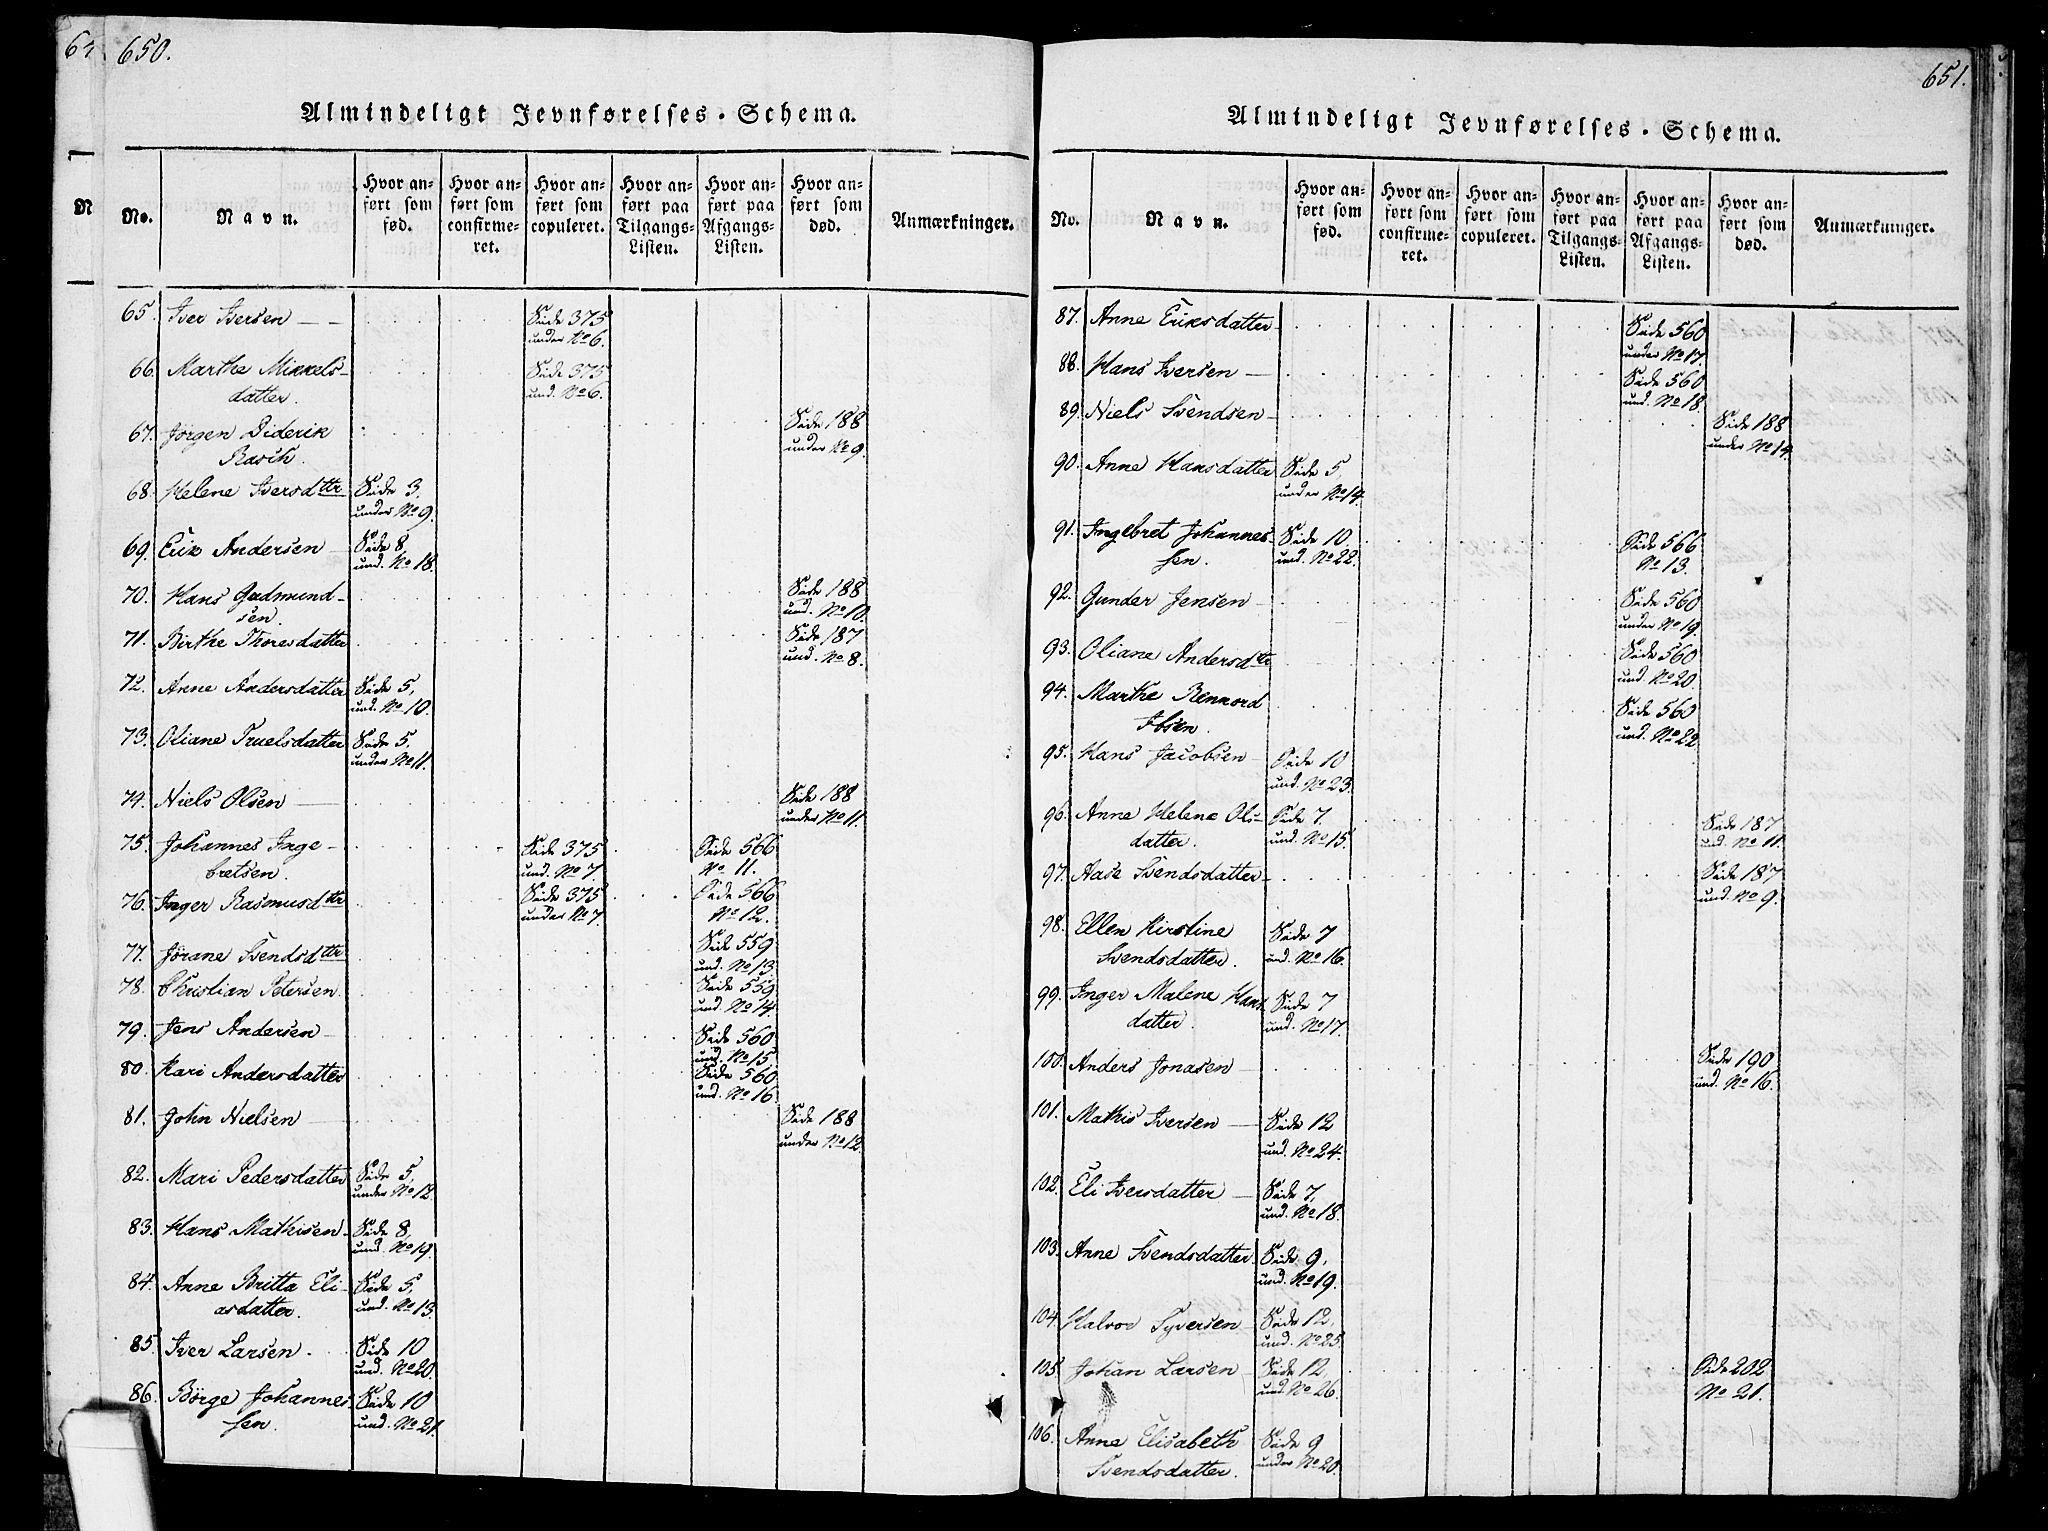 650.
Almindeligt Jevnførelses-Schema.
No.
Navn.
Hvor an-
ført som
fød.
Hvor an-
ført som
confirme-
ret.
Hvor an-
ført som
copuleret.
Hvor an-
ført paa
Tilgangs-
Listen.
Hvor an-
ført paa
Afgangs-
Listen.
Hvor an-
ført som
død.
Anmærkninger.
65. Iver Iversen — — Side 375
under No 6.
66. Marthe Mikkels- Side 375
datter. und. No 6.
67. Jörgen Diderik Side 188
Rasch. under No 9.
68. Helene Iversdttr Side 3.
under No 9.
69. Erik Andersen — Side 8,
und. No 18.
70. Hans Gudmund- Side 188
sen. und. No 10.
71. Birthe Thoresdatter Side 187
und. No 8.
72. Anne Andersdatter Side 5,
und. No 10.
73. Oliane Truelsdatter Side 5,
under No 11.
74. Niels Olsen — Side 188
under No 11.
75. Johannes Inge- Side 375 Side 566
bretsen. und. No 7. No 11.
76. Inger Rasmusdttr Side 375 Side 566
under No 7. No 12.
77. Jörane Svendsdttr Side 559
und. No 13.
78. Christian Petersen. Side 559
und. No 14.
79. Jens Andersen — Side 560
und. No 15.
80. Kari Andersdatter Side 560
und. No 16.
81. John Nielsen — Side 188
under No 12.
82. Mari Pedersdatter Side 5,
under No 12.
83. Hans Mathisen. Side 8,
und. No 19.
84. Anne Britta Eli- Side 5,
asdatter. und. No 13.
85. Iver Larsen. Side 10
und. No 20.
86. Börge Johannes- Side 10
sen. und. No 21.
651.
Almindeligt Jevnførelses-Schema.
No.
Navn.
Hvor an-
ført som
fød.
Hvor an-
ført som
confirme-
ret.
Hvor an-
ført som
copuleret.
Hvor an-
ført paa
Tilgangs-
Listen.
Hvor an-
ført paa
Afgangs-
Listen.
Hvor an-
ført som
død.
Anmærkninger.
87. Anne Eriksdatter Side 560
under No 17.
88. Hans Iversen — Side 560
und. No 18.
89. Niels Svendsen — Side 188
under No 14.
90. Anne Hansdatter Side 5
under No 14.
91. Ingebret Johannes- Side 10. Side 566
sen. und. No 22. No 13.
92. Gunder Jensen — Side 560
under No 19.
93. Oliane Andersdtr Side 560
und. No 20.
94. Marthe Rennord Side 560
Ibsen. und. No 22.
95. Hans Jacobsen — Side 10
und. No 23.
96. Anne Helene Ols- Side 7. Side 187
datter. und. No 15. und. No 11.
97. Aase Svendsdatter — Side 187
und. No 9.
98. Ellen Kirstine Side 7
Svendsdatter. und. No 16.
99. Inger Malene Hans- Side 7
datter. und. No 17.
100. Anders Jonasen — Side 190
und. No 16.
101. Mathis Iversen — Side 12
und. No 24.
102. Eli Iversdatter — Side 7,
und. No 18.
103. Anne Svendsdatter. Side 9,
und. No 19.
104. Halvor Syversen — Side 12,
und. No 25.
105. Johan Larsen — Side 12, Side 202
und. No 26. No 21.
106. Anne Elisabeth Side 9
Svendsdatter. under No 20.